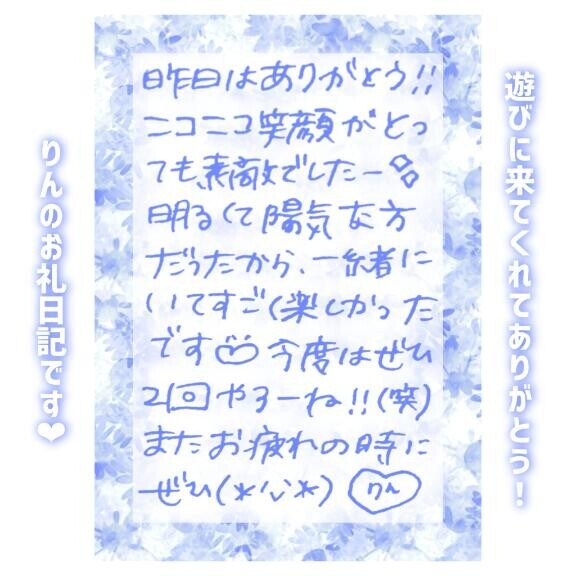 遊びに来てくれてありがとう！
昨日はありがとう!!
ニコニコ笑顔がとっ
ても素敵でしたー
明るくて陽気な方
だったから、一緒に
いてすごく楽しかった
です♡今度はぜひ
2回やろーね!!(笑)
またお疲れの時に
ぜひ(*'ν'*) りん
りんのお礼日記です❤